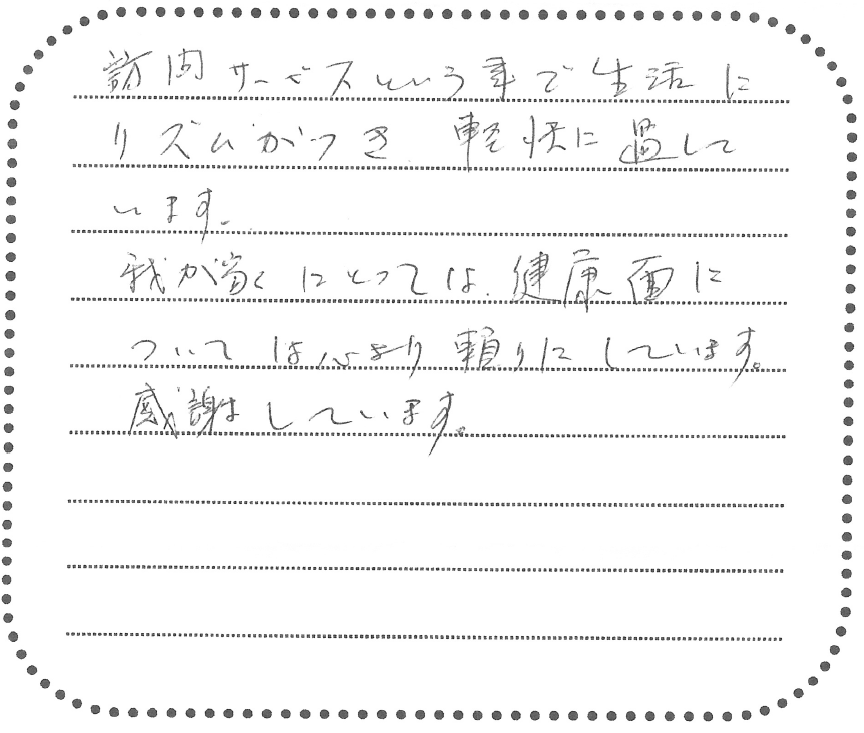 訪問サービスという事で生活に
リズムがつき 軽快に過して
います。
我が家にとっては、健康面に
ついては心より頼りにしています。
感謝しています。